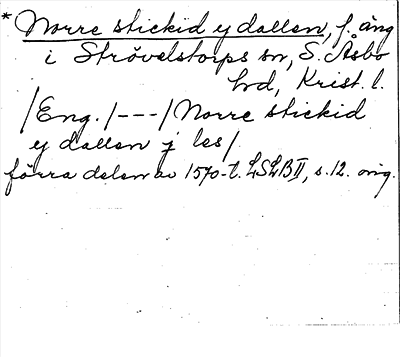 * Norre stickid ej dallen, f. äng
i Strövelstorps sn, S. Åsbo
hd, Krist. l.
/Eng./---/Norre stickid
ej dallen j les/
förra delen av 1570-t. LSLB II, s. 12. orig.